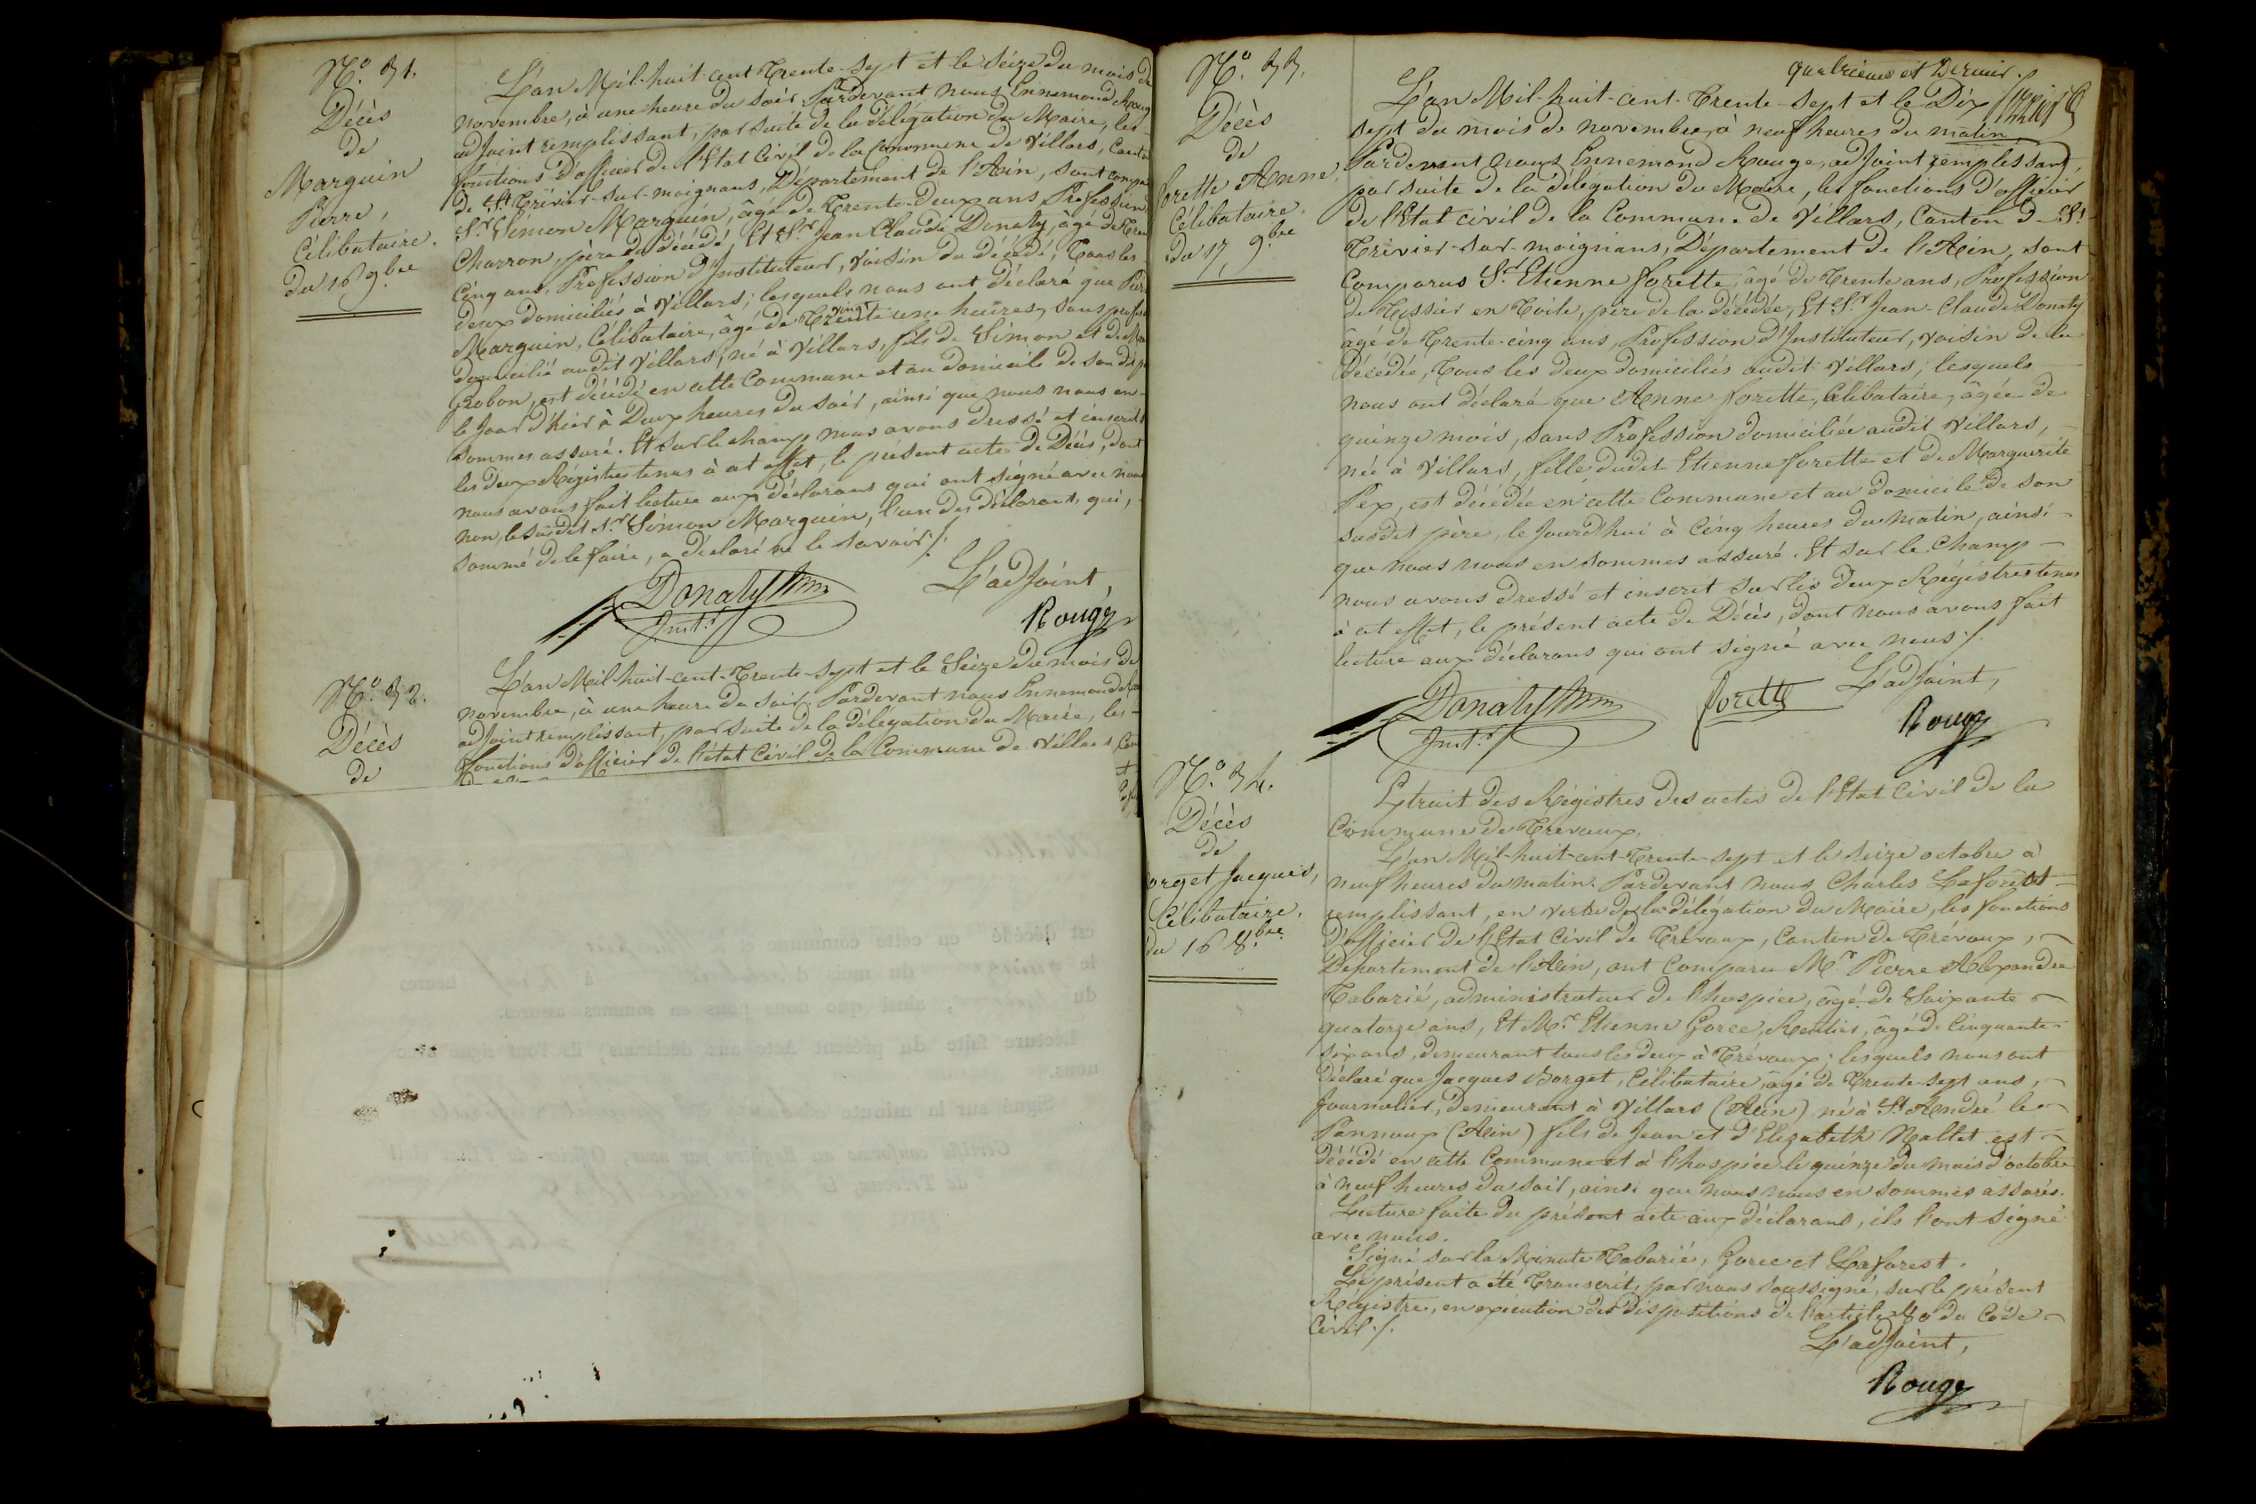 N.o 31.
Décès
de
Marguin
Pierre,
Célibataire.
du 16 9.bre
L'an Mil-huit-cent Trente-sept et le Seize du mois de
novembre, à une heure du soir Pardevant nous Ennemond Roug
adjoint remplissant, par suite de la délégation du Maire, les
fonctions d'officier de l'Etat Civil de la Commune de Villars, Canton
de St Trivier-sur-moignans, Département de l'Ain, sont comparus
Sr Simon Marguin, âgé de Trente-deux ans Profession
Charron, père du décédé, Et Sr Jean Claude Donaty, âgé de Trente
Cinq ans, Profession d'Instituteur, Voisin du décédé, Tous les
deux domiciliés à Villars; lesquels nous ont déclaré que Pierre
Marguin, Célibataire, âgé de Trente vingt une heures, sans profess
domicilié audit Villars, né à Villars, fils de Simon et de
Gobon, est décédé en cette Commune et au domicile de son dit père
le Jour d'hier à Deux heures du soir, ainsi que nous nous en
sommes assuré. Et sur le champ nous avons dressé et inscrit
les deux Régistres tenus à cet effet, le présent acte de Décès, dont
nous avons fait lecture aux déclarans qui ont signé avec nous
non, le susdit Sr Simon Marguin, l'un des déclarans, qui,
sommé de le faire, a déclaré ne le savoir./.
Donaty
Inst.r
L'adjoint,
Rouge
N.o 32.
Décès
de
L'an Mil-huit-cent-Trente-sept et le Seize du mois de
novembre, à une heure du soir. Pardevant nous Ennemond
adjoint remplissant, par suite de la délégation du Maire, les
fonctions d'officier de l'état Civil de la Commune de Villars, Can
est décédé en cette commune et
le du mois d' à heures
du , ainsi que nous nous en sommes assurés.
Lecture faite du présent Acte aux déclarans, ils l'ont signé avec
nous.
Signé sur la minute
Certifié conforme au Registre par nous Officier de l'Etat civil
de Trévoux le
Laforest
N.o 33.
Décès
de
forette Anne,
Célibataire.
du 17, 9.bre
quatrième et Dernier.
L'an Mil-huit-cent-Trente-sept et le Dix
sept du mois de novembre, à neuf heures du matin
Pardevant nous Ennemond Rouge, adjoint remplissant,
par suite de la délégation du Maire, les fonctions d'officier
de l'Etat civil de la Commune de Villars, Canton de St
Trivier-sur-moignans, Département de l'Ain, sont
Comparus Sr Etienne forette, âgé de Trente ans, Profession
de Tissier en Toile, père de la décédée, Et Sr Jean-Claude Donaty
âgé de Trente-cinq ans, Profession d'Instituteur, voisin de la
décédée, Tous les deux domiciliés audit Villars; lesquels
nous ont déclaré que Anne forette, Célibataire, âgée de
quinze mois, sans Profession domiciliée audit Villars,
née à Villars, fille dudit Etienne forette et de Marguerite
Pex, est décédée en cette Commune et au domicile de son
susdit père, le Jourd'hui à Cinq heures du matin, ainsi
que nous nous en sommes assuré. Et sur le Champ
nous avons dressé et inscrit sur les deux Régistres tenus
à cet effet, le présent acte de Décès, dont nous avons fait
lecture aux déclarans qui ont signé avec nous./.
Donaty
Inst.r
forette
L'adjoint,
Rouge
N.o 34.
Décès
de
orget Jacques,
Célibataire.
du 16 8.bre
Extrait des Régistres des actes de l'Etat Civil de la
Commune de Trevoux.
L'an Mil-huit-cent-Trente-sept et le seize octobre à
neuf heures du matin. Pardevant nous Charles Laforest
remplissant, en vertu de la délégation du Maire, les fonctions
d'officier de l'Etat Civil de Trévoux, Canton de Trévoux,
Département de l'Ain, ont comparu Mr Pierre Alexandre
Tabarié, administrateur de l'hospice, âgé de Soixante
quatorze ans, Et Mr Etienne Goree, Rentier, âgé de Cinquante
six ans, demeurant tous les deux à Trévoux; lesquels nous ont
déclaré que Jacques Borget, Célibataire, âgé de Trente-sept ans,
journalier, demeurant à Villars (Ain) né à St André le
Pannoux (Ain) fils de Jean et d'Elizabeth Mallet est
décédé en cette Commune et à l'hospice le quinze du mois d'octobre
à neuf heures du soir, ainsi que nous nous en sommes assurés.
Lecture faite du présent acte aux déclarans, ils l'ont signé
avec nous.
Signé sur la Minute Tabarié, Goree et Laforest.
Le présent a été Transcrit, par nous soussigné, sur le présent
Régistre, en exécution des dispositions de l'article 80 du Code
Civil./.
L'adjoint,
Rouge